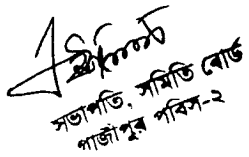 সভাপতি, সমিতি বোর্ড
গাজীপুর পবিস-২